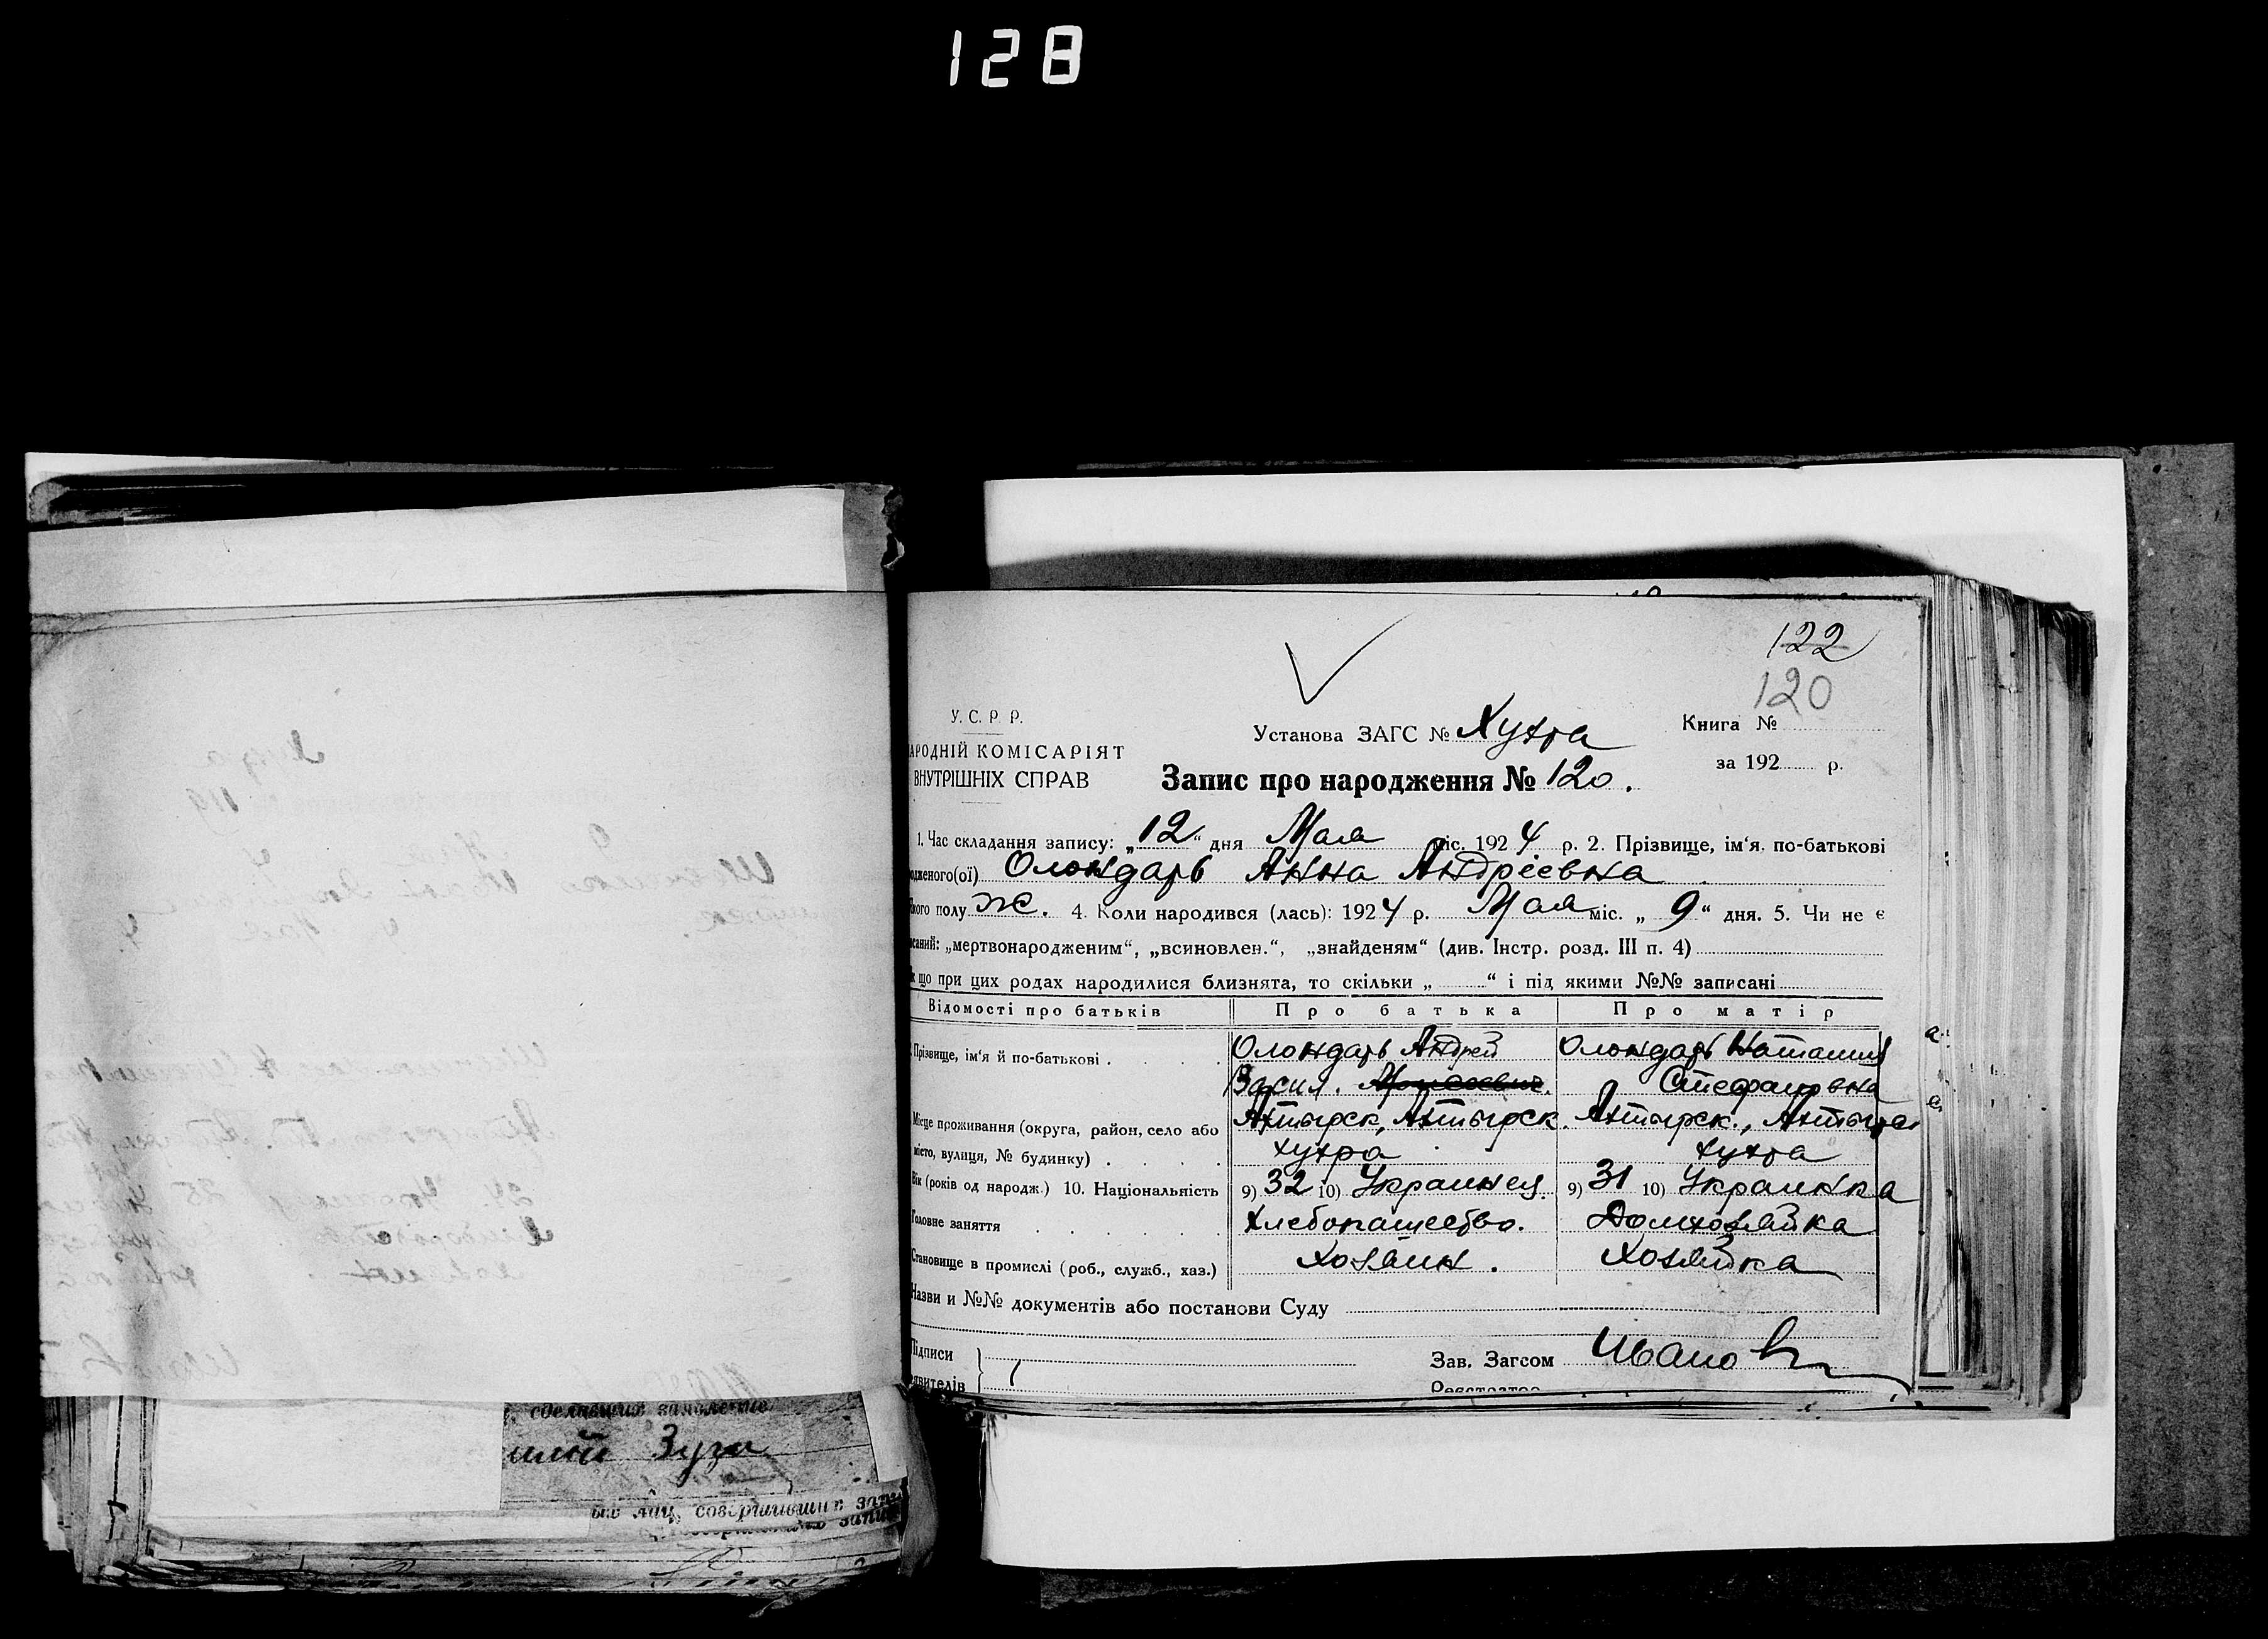 128
122
120
У. С. Р. Р.
АРОДНІЙ КОМІСАРІЯТ
ВНУТРІШНІХ СПРАВ
Установа ЗАГС № Хухра
Книга №
за 192 р.
Запис про народження № 120.
1. Час складання запису: „12“ дня Мая міс. 1924 р. 2. Прізвище, ім‘я. по-батькові
одженого(ої) Олондарь Анна Андріевна
кого полу ж. 4. Коли народився (лась): 1924 р. Мая міс. „9“ дня. 5. Чи не є
саний: „мертвонародженим“, „всиновлен.“, „знайденям“ (див. Інстр. розд. III п. 4)
що при цих родах народилися близнята, то скільки „ “ і під якими №№ записані
Відомості про батьків Про батька Про матір
Прізвище, ім‘я й по-батькові . Олондарь Андрей Олондарь Наталия
Васил. Стефановна
Місце проживання (округа, район, село або Ахтырск, Ахтырск. Ахтырск., Ахтырс
місто, вулиця, № будинку) . Хухра Хухра
Вік (років од народж.) 10. Національність 9) 32 10) Украинец. 9) 31 10) Украинка
Головне заняття Хлебопашество. Домхозяйка
Становище в промислі (роб., служб., хаз.) Хозяин. Хозяйка
Назви и №№ документів або постанови Суду
Підписи
явителів
Зав. Загсом Иванов
сделавших заявление
Зуга
ых лиц, совершивших запи